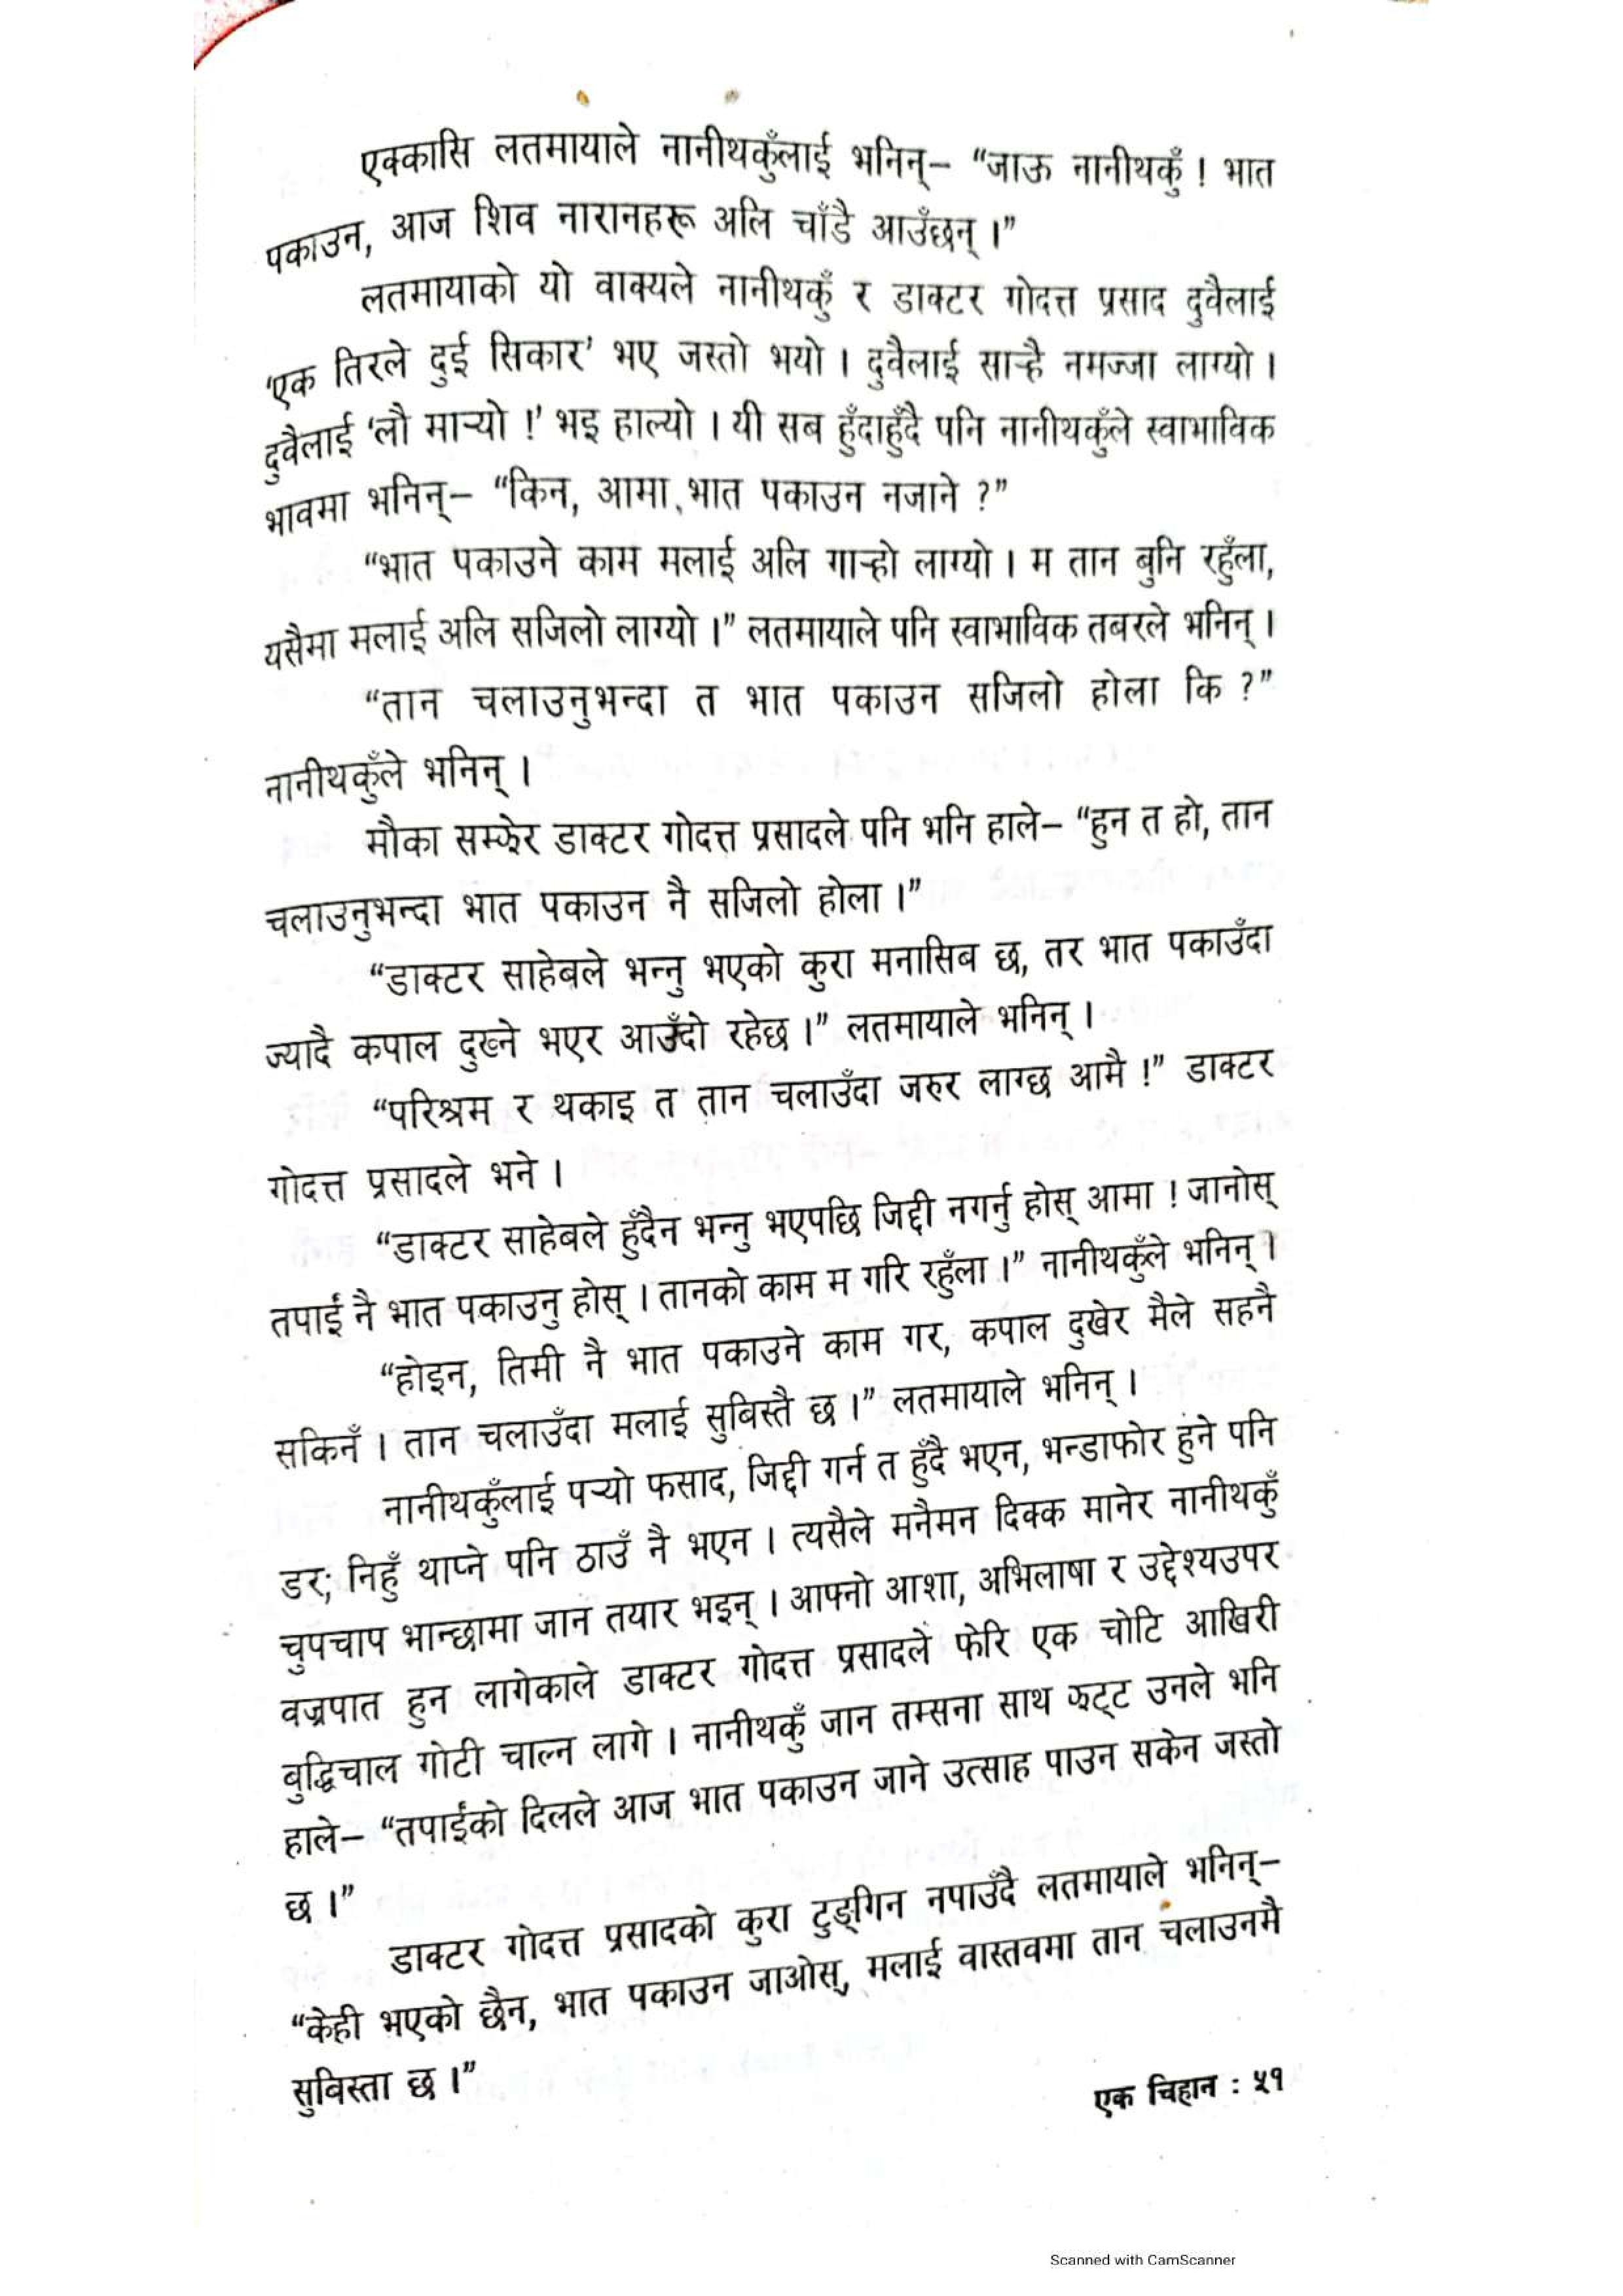 एक्कासि लतमायाले नानीथकुँलाई भनिन्– “जाऊ नानीथकुँ ! भात
पकाउन, आज शिव नारानहरू अलि चाँडै आउँछन् ।”
लतमायाको यो वाक्यले नानीथकुँ र डाक्टर गोदत्त प्रसाद दुवैलाई
‘एक तिरले दुई सिकार’ भए जस्तो भयो । दुवैलाई साऱ्है नमज्जा लाग्यो ।
दुवैलाई ‘लौ माऱ्यो !’ भइ हाल्यो । यी सब हुँदाहुँदै पनि नानीथकुँले स्वाभाविक
भावमा भनिन्– “किन, आमा, भात पकाउन नजाने ?”
“भात पकाउने काम मलाई अलि गाऱ्हो लाग्यो । म तान बुनि रहुँला,
यसैमा मलाई अलि सजिलो लाग्यो ।” लतमायाले पनि स्वाभाविक तबरले भनिन् ।
“तान चलाउनुभन्दा त भात पकाउन सजिलो होला कि ?”
नानीथकुँले भनिन् ।
मौका सम्झेर डाक्टर गोदत्त प्रसादले पनि भनि हाले– “हुन त हो, तान
चलाउनुभन्दा भात पकाउन नै सजिलो होला ।”
“डाक्टर साहेबले भन्नु भएको कुरा मनासिब छ, तर भात पकाउँदा
ज्यादै कपाल दुख्ने भएर आउँदो रहेछ ।” लतमायाले भनिन् ।
“परिश्रम र थकाइ त तान चलाउँदा जरुर लाग्छ आमै !” डाक्टर
गोदत्त प्रसादले भने ।
“डाक्टर साहेबले हुँदैन भन्नु भएपछि जिद्दी नगर्नु होस् आमा ! जानोस्
तपाईं नै भात पकाउनु होस् । तानको काम म गरि रहुँला ।” नानीथकुँले भनिन् ।
“होइन, तिमी नै भात पकाउने काम गर, कपाल दुखेर मैले सहनै
सकिनँ । तान चलाउँदा मलाई सुबिस्तै छ ।” लतमायाले भनिन् ।
नानीथकुँलाई पऱ्यो फसाद, जिद्दी गर्न त हुँदै भएन, भन्डाफोर हुने पनि
डर; निहुँ थाप्ने पनि ठाउँ नै भएन । त्यसैले मनैमन दिक्क मानेर नानीथकुँ
चुपचाप भान्छामा जान तयार भइन् । आफ्नो आशा, अभिलाषा र उद्देश्यउपर
वज्रपात हुन लागेकाले डाक्टर गोदत्त प्रसादले फेरि एक चोटि आखिरी
बुद्धिचाल गोटी चाल्न लागे । नानीथकुँ जान तम्सना साथ झट्ट उनले भनि
हाले– “तपाईंको दिलले आज भात पकाउन जाने उत्साह पाउन सकेन जस्तो
छ ।”
डाक्टर गोदत्त प्रसादको कुरा टुङ्गिन नपाउँदै लतमायाले भनिन्–
“केही भएको छैन, भात पकाउन जाओस्, मलाई वास्तवमा तान चलाउनमै
सुविस्ता छ ।”
एक चिहान : ५१
Scanned with CamScanner